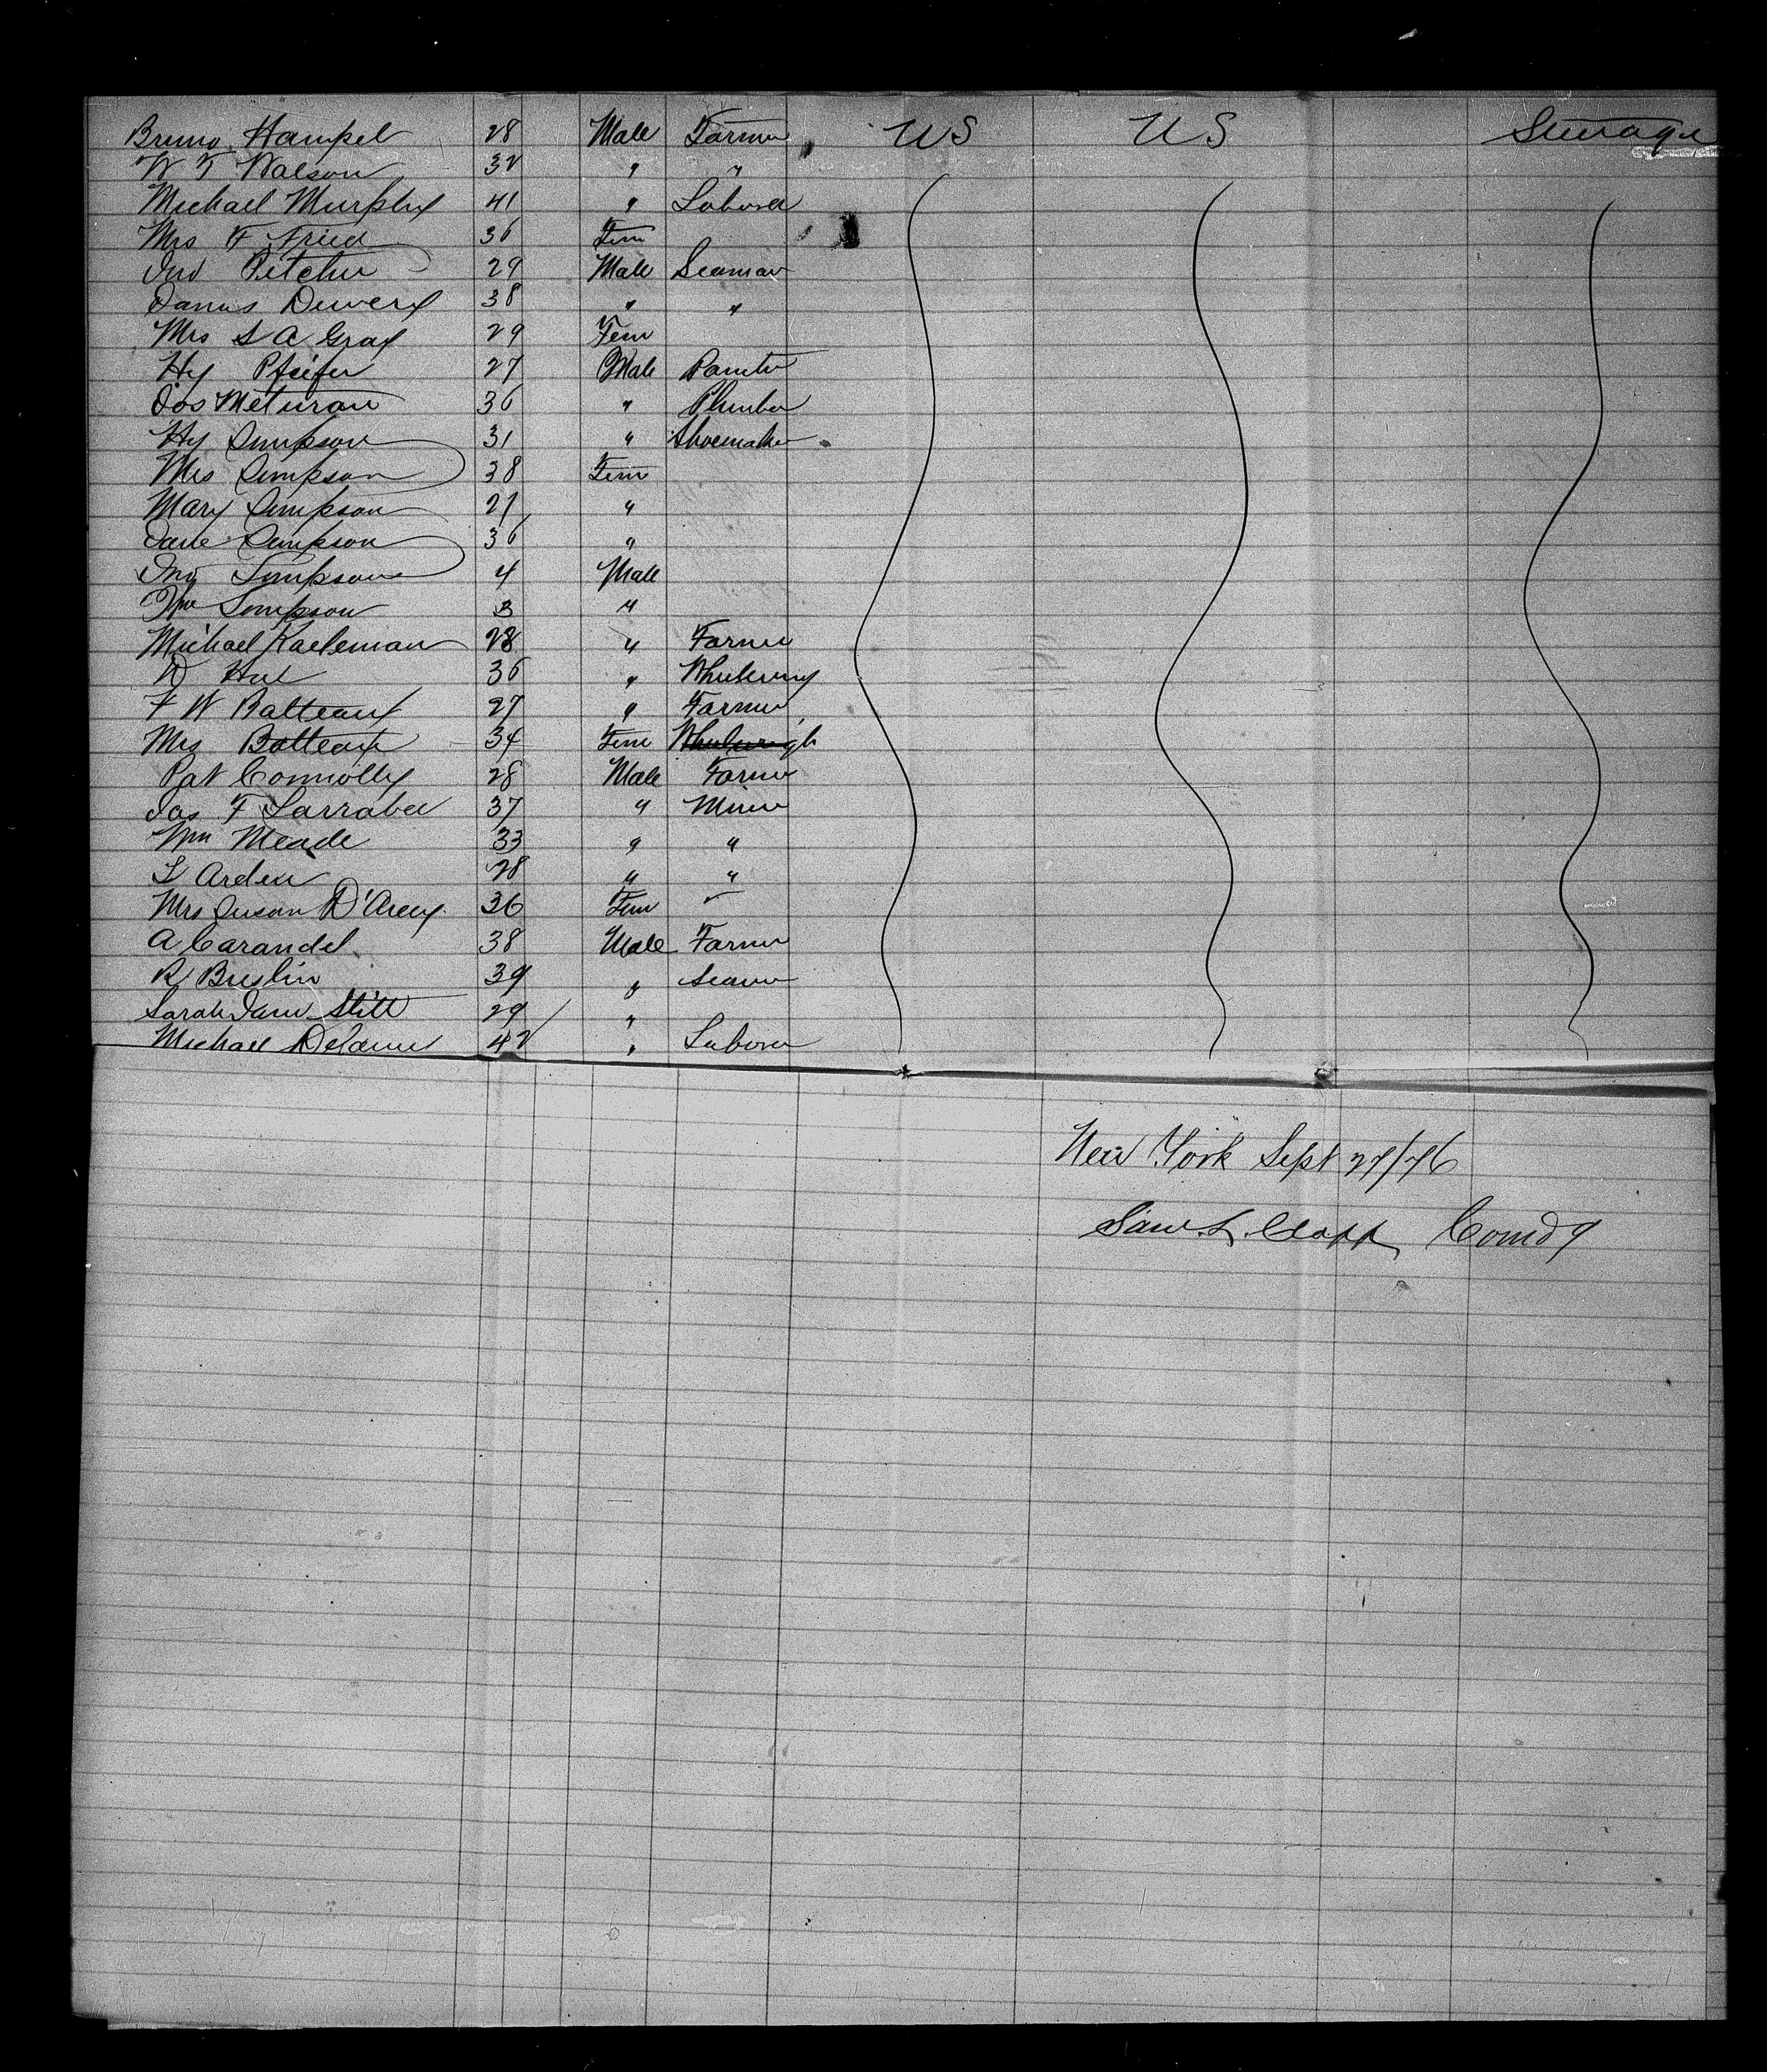 Bruno Hampel 28 Male Farmer US US Steerage
W F Walson 32 " "
Michael Murphy 41 " Laborer
Mrs F Fried 36 Fem
Jno Pitcher 29 Male Seaman
James Dewery 38 " "
Mrs S A Gray 29 Fem
Hy Pfeifer 27 Male Painter
Jos 36 " Plumber
Hy Simpson 31 " Shoemaker
Mrs Simpson 38 Fem
Mary Simpson 21 "
Jane Simpson 36 "
Jno Simpson 4 Male
Wm Simpson 3 "
Michael Kaeleman 28 " Farmer
D 36 "
F W Batteaux 27 " Farmer
Mrs Batteaux 34 Fem
Pat Connolly 28 Male Farmer
Jas F Larrabee 37 " Miner
Wm Meade 33 " "
L Arden 28 " "
Mrs Susan D'Arcy 36 Fem "
A Carandel 38 Male Farmer
R Breslin 39 "
Sarah Jane Stitt 29 "
Michael Delaune 42 " Laborer
New York Sept 27/76
Saml L. Clapp Comdg